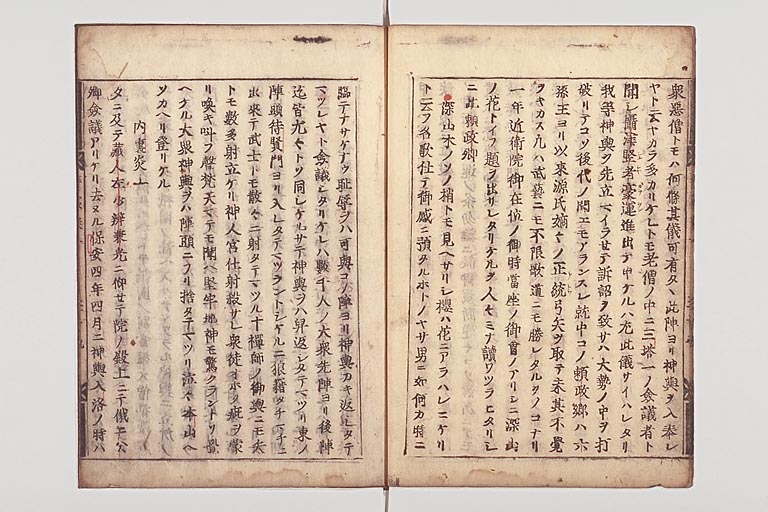 衆悪僧トモハ何條其儀可有タヽ此陣ヨリ神輿ヲ入奉レ
ヤト云ヤカラ多カリケレトモ老僧ノ中ニ三塔一ノ僉議者ト
聞シ竪者豪運進出テ申ケルハ尤此儀サイハレタリ
我等神輿ヲ先立マイラセテ訴詔ヲ致サハ大勢ノ中ヲ打
破リテコソ後代ノ聞エモアランスレ就中コノ頼政卿ハ六
孫王ヨリ以来源氏嫡々ノ正統弓矢ヲ取テ未其不覺
ヲキカス凡ハ武藝ニモ不限歌道ニモ勝レタルヲノコナリ
一年近衛院御在位ノ御時當座ノ御會ノアリシニ深山
ノ花トイフ題ヲ出サレタリケルヲ人々ミナ讀ワツラヒタリシ
ニ此頼政卿
深山木ノソノ梢トモ見ヘサリシ櫻ハ花ニアラハレニケリ
ト云フ名歌仕テ御感ニ預タルホトノヤサ男ニ如何カ時ニ
臨テナサケナウ耻辱ヲハ可與コノ陣ヨリ神輿カキ返シタテ
マツレヤト僉議シタリケレハ數千人ノ大衆先陣ヨリ後陣
迄皆尤々トソ同シケルサテ神輿ヲハ舁返シタテマツリ東ノ
陣頭待賢門ヨリ入レタテマツラントシケルニ狼藉タチマチニ
出來テ武士トモ散々ニ射タテマツル十禪師ノ御輿ニモ矢
トモ數多射立ケリ神人宮仕射殺サレ衆徒オホク疵ヲ蒙
リ喚キ叫フ聲梵天マテモ聞ヘ堅牢地神モ驚クラントソ覺
ヘケル大衆神輿ヲハ陣頭ニフリ捨タテマツリ泣々本山ヘ
ソカヘリ登リケル
内裏炎上
夕ニ及テ藏人左少辨兼光ニ仰セテ院ノ殿上ニテ俄ニ公
卿僉議アリケリ去ヌル保安四年四月ニ神輿入洛ノ時ハ